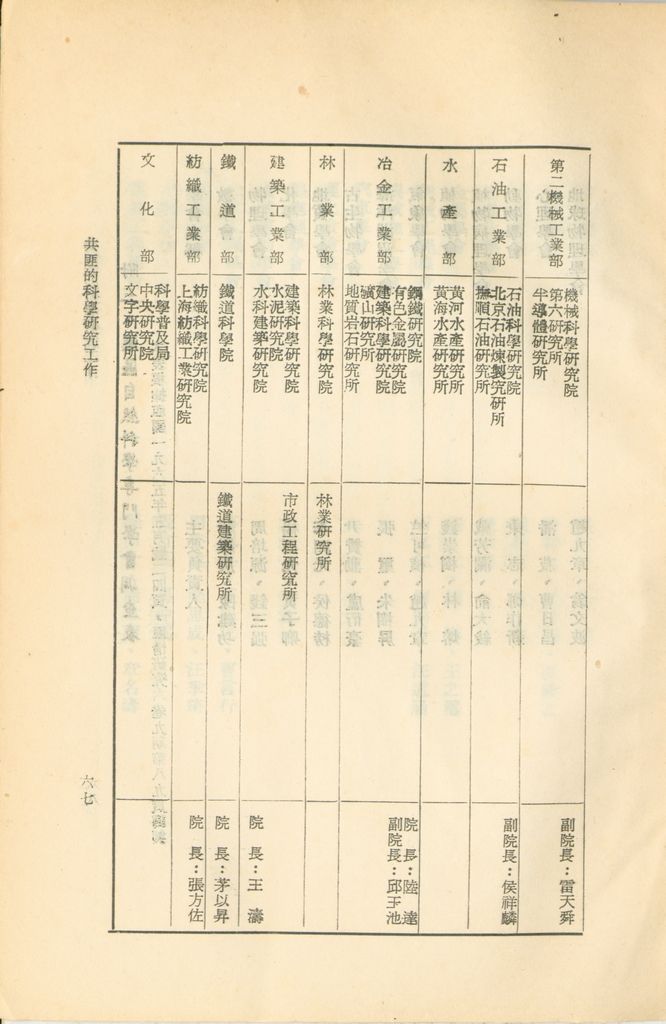 第二機械工業部
機械科學研究院
第六研究所
半導體研究所
副院長：雷天舜
石油工業部
石油科學研究院
北京石油煉製研究所
撫順石油研究所
副院長：侯祥麟
水產部
黃河水產研究所
黃海水產研究所
冶金工業部
鋼鐵研究院
有色金屬研究院
建築科學研究院
礦山研究所
地質岩石研究所
院長：陸達
副院長：邱玉池
林業部
林業科學研究院
林業研究所
建築工業部
建築科學研究院
水泥研究院
水科建築研究院
市政工程研究所
院長：王濤
鐵道部
鐵道科學院
鐵道建築研究所
院長：茅以昇
紡織工業部
紡織科學研究院
上海紡織工業研究院
院長：張方佐
文化部
科學普及局
中央研究院
文字研究所
共匪的科學研究工作
六七